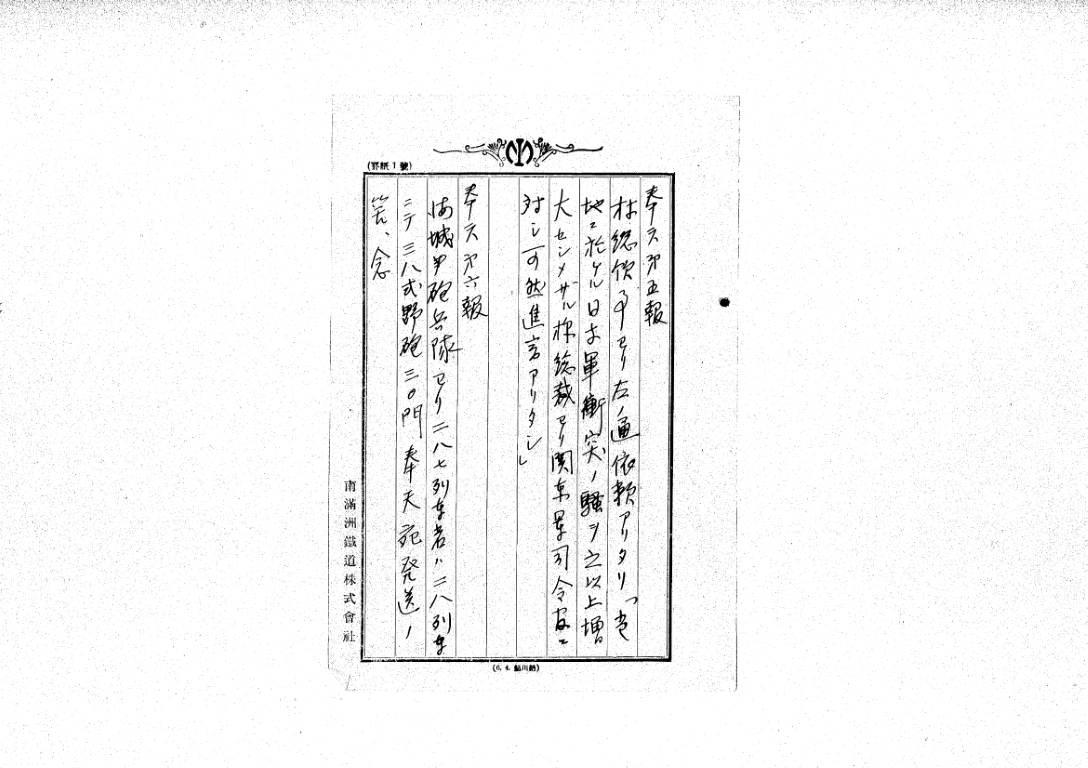 (野紙1號)
奉天第五報
林総領事ヨリ左ノ通依頼アリタリ「当
地ニ於ケル日支軍衝突ノ騒ヲ之以上増
大センメザル様総裁ヨリ関東軍司令官ニ
対シ可然進言アリタシ」
奉天第六報
海城野砲兵隊ヨリ二八七列車若ハ二八列車
ニテ三八式野砲三〇門奉天宛発送ノ
筈、念
南滿洲鐵道株式會社